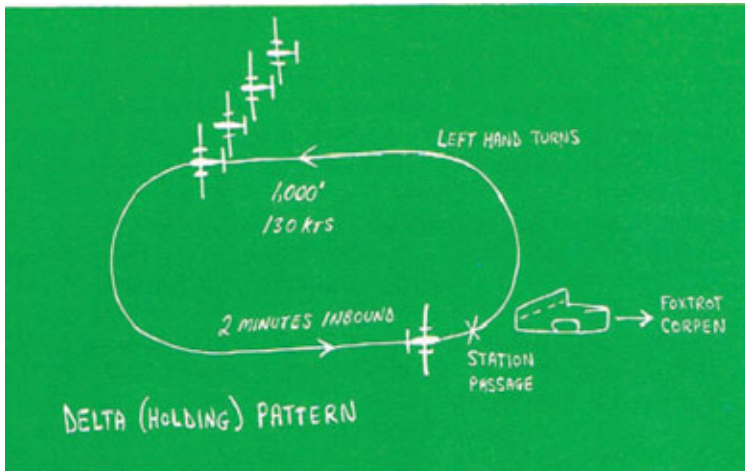 LEFT HAND TURNS
1,000'
130 KTS
2 MINUTES INBOUND
STATION
PASSAGE
FOXTROT
CORPEN
DELTA (HOLDING) PATTERN